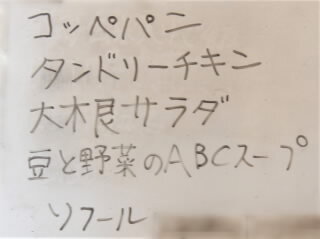 コッペパン
タンドリーチキン
大根サラダ
豆と野菜のABCスープ
ソフール